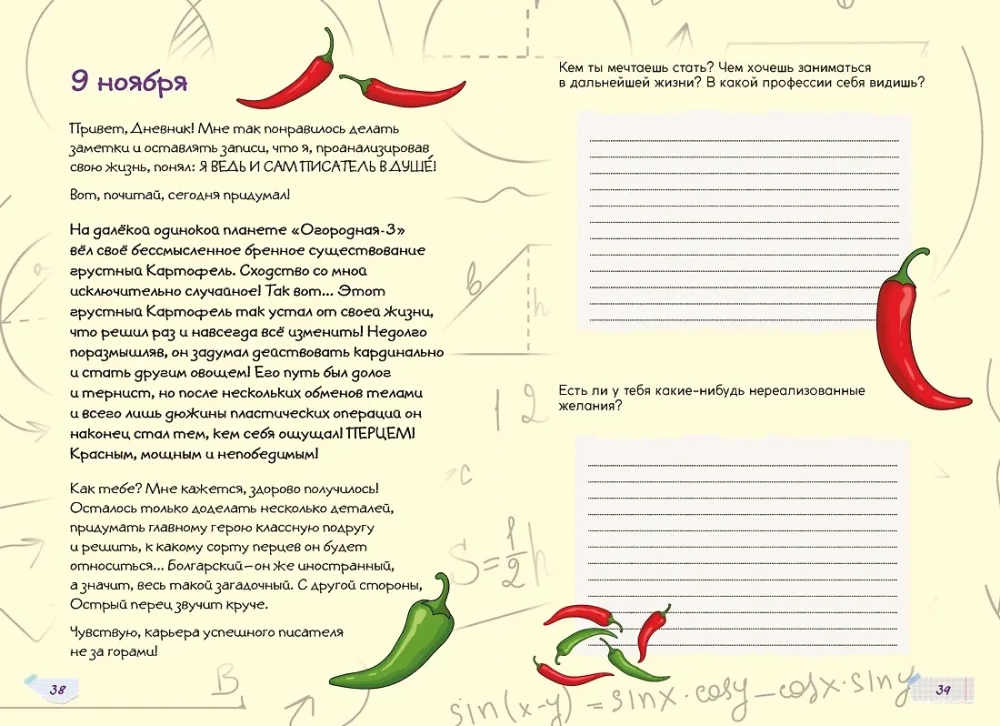 9 ноября
Привет, Дневник! Мне так понравилось делать
заметки и оставлять записи, что я, проанализировав
свою жизнь, понял: Я ВЕДЬ И САМ ПИСАТЕЛЬ В ДУШЕ́!
Вот, почитай, сегодня придумал!
На далёкой одинокой планете «Огородная-3»
вёл своё бессмысленное бренное существование
грустный Картофель. Сходство со мной
исключительно случайное! Так вот... Этот
грустный Картофель так устал от своей жизни,
что решил раз и навсегда всё изменить! Недолго
поразмышляв, он задумал действовать кардинально
и стать другим овощем! Его путь был долог
и тернист, но после нескольких обменов телами
и всего лишь дюжины пластических операций он
наконец стал тем, кем себя ощущал! ПЕРЦЕМ!
Красным, мощным и непобедимым!
Как тебе? Мне кажется, здорово получилось!
Осталось только доделать несколько деталей,
придумать главному герою классную подругу
и решить, к какому сорту перцев он будет
относиться... Болгарский – он же иностранный,
а значит, весь такой загадочный. С другой стороны,
Острый перец звучит круче.
Чувствую, карьера успешного писателя
не за горами!
38
B
Кем ты мечтаешь стать? Чем хочешь заниматься
в дальнейшей жизни? В какой профессии себя видишь?
a
b
h
Есть ли у тебя какие-нибудь нереализованные
желания?
12
c
S=1/2h
sin(x-y)=sinx·cosy-cosx·siny
39